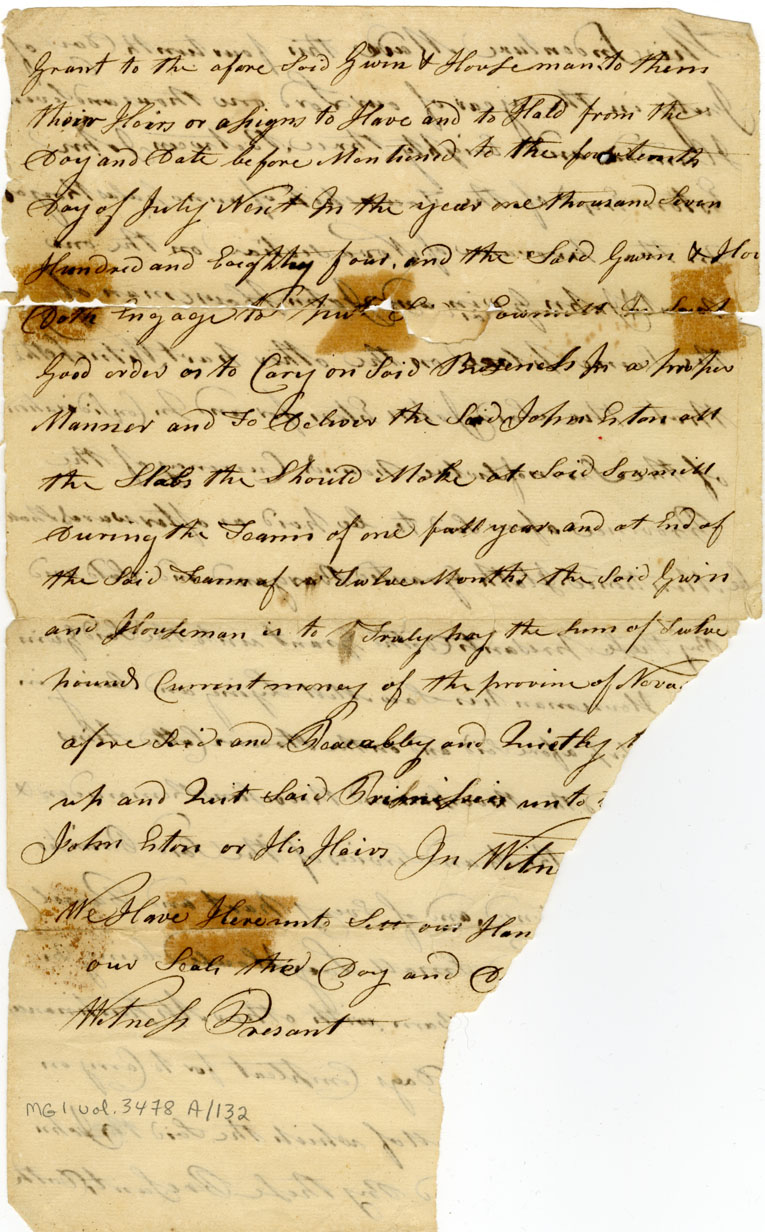 Grant to the afore Said Gwin & Houseman to them
their Heirs or assigns to Have and to Hald from the
Day and Date before Mentioned to the fourteenth
Day of July Next In the year one thousand Seven
Hundred and Eeighty four, and the Said Gwin & Hou
Doth Engage to Sawmill In Said
Good order as to Cary on Said Buseness In a proper
Manner and To Deliver the Said John Eston all
the Slabs the Should Make at Said Sawmill
During the Tearm of one full year and at End of
the Said Tearm of a Twelve Months the Said Gwin
and Houseman is to Truly pay the sum of Twelve
pounds Current money of the provine of Nova
afore Said and Peaceabley and Quietly
up and Quit Said unto
John Eston or His Heirs In Witn
We Have Hereunto Sett our Han
our Seals the Day and D
Witness Presant
MG 1 vol. 3478 A/132